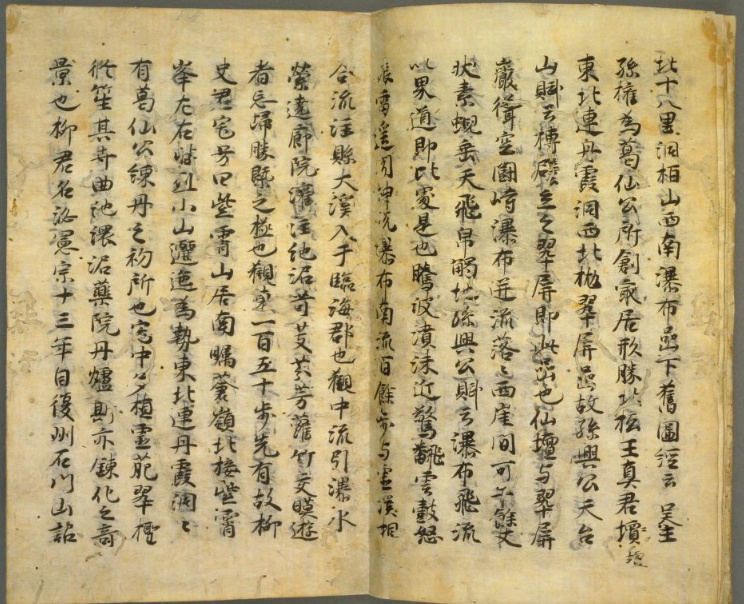 北十八里洞柏山西南瀑布巖下舊圖經云吴主
孫權為葛仙公所創最居形勝北松王真君壇
東北連丹霞洞西北枕翠屏巖故孫興公天台
山賦云搏壁立之翠屏即此巖也仙壇与翠屏
巖聳空闘峙瀑布迸流落々西崖間可千餘丈
狀素蜺垂天飛帛觸地孫興公賦云瀑布飛流
以界道即此處是也騰波濆沫近驚飜雲鼓怒
振雷遥聞瀑布南流百餘步与靈溪相
合流注縣大溪入于臨海郡也觀中流引瀑水
縈遶廊院灌注池沼苛芰芬芳蘿竹交暎遊
者忘歸勝槩之極也觀東一百五十步先有故柳
史君宅号曰紫霄山居南矚蒼嶺北接紫霄
峯左右列小山邐迤為勢東北連丹霞洞々
有葛仙公練丹之初所也宅中多植靈菀翠檉
其奇曲池沼藥院丹爐斯亦錬化之奇
景也柳君名泌憲宗十三年自復州石門山詔